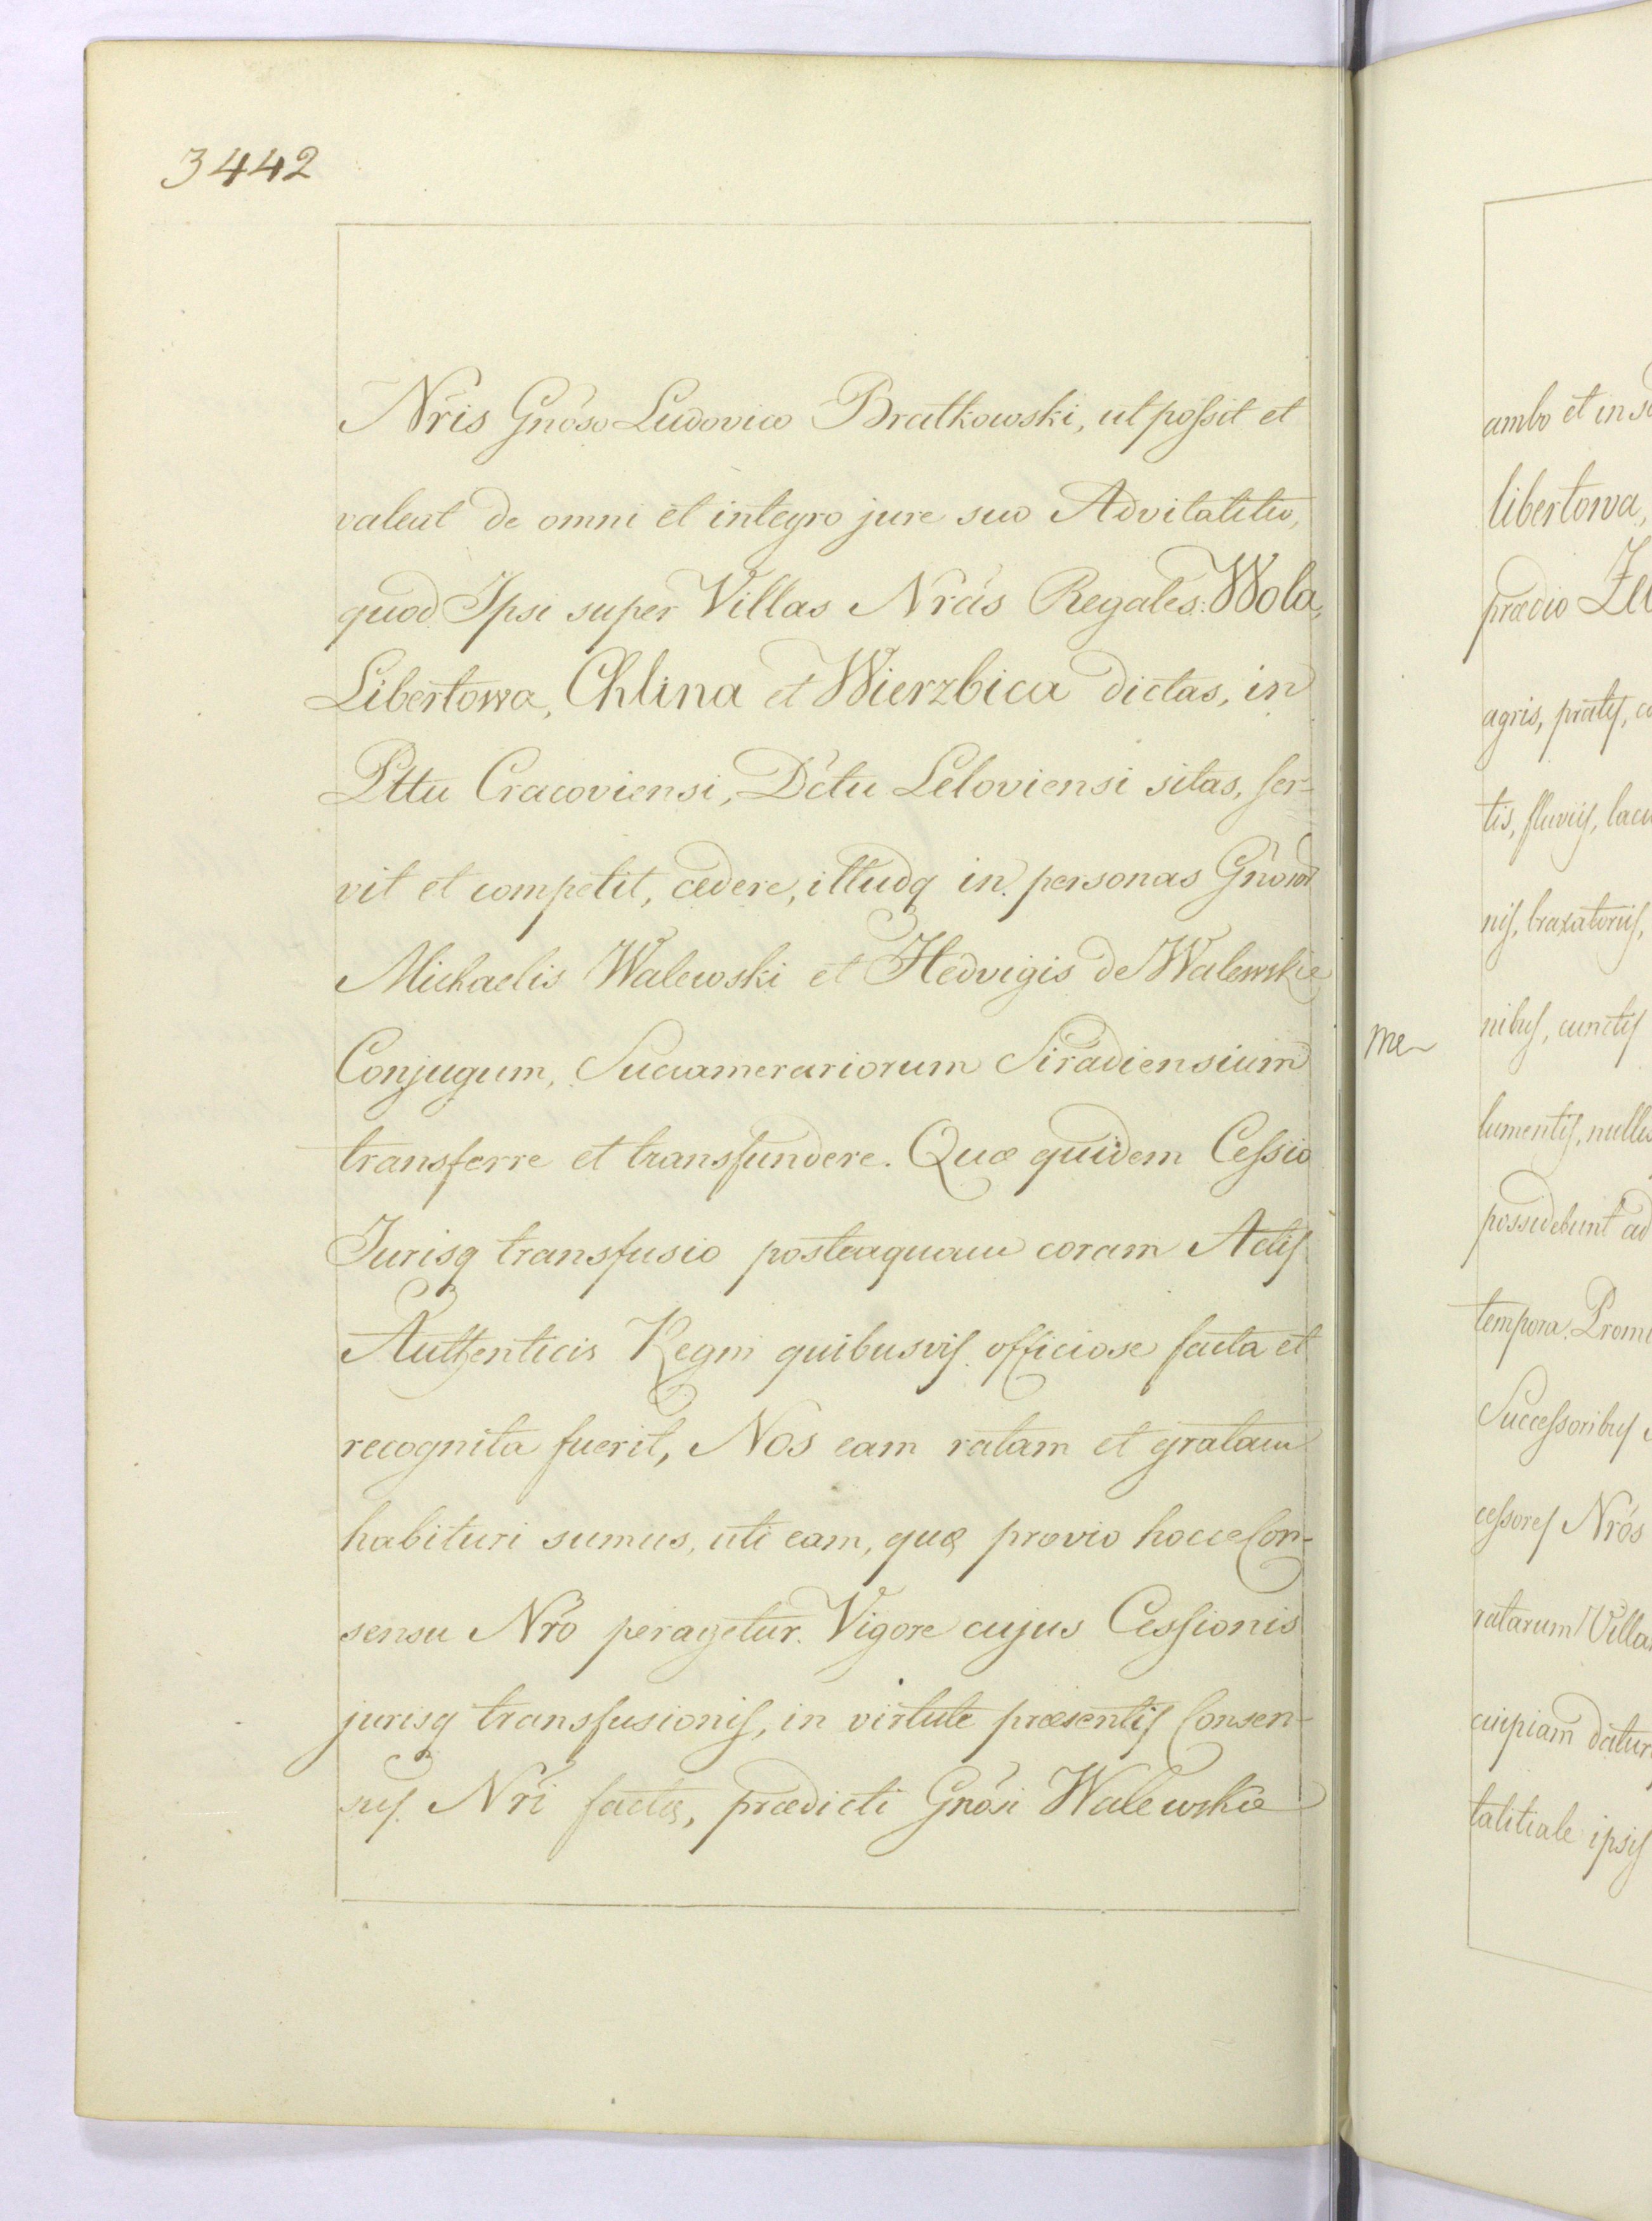 3442
Nr̃is Gnoso Ludovico Bratkowski, ut possit et
valeat de omni et integro jure suo Advitalitio,
quod Ipsi super Villas Nrás Regales: Wola,
Libertowa, Chlina et Wierzbica dictas, in
Pttu Cracoviensi, Dctu Leloviensi sitas, ser-
vit et competit, cedere, illudq in personas Gnórũ
Michaelis Walewski et Hedvigis de Walewskie
Conjugum, Succamerariorum Siradiensium
transferre et transfundere. Quæ quidem Cessio
Jurisq transfusio posteaquam coram Actis
Authenticis Regni quibusvis officiose facta et
recognita fuerit, Nos eam ratam et gratam
habituri sumus, uti eam, quæ prævio hocce Con-
sensu Nró peragetur. Vigore cujus Cessionis
jurisq transfusionis, in virtute præsentis Consen-
sus Nrí factæ, prædicti Gnósi Walewskie
ambo et in
libertowa,
prædio
agris, pratis,
tis, fluviis,
nis, braxatoriis,
me
nibus, cunctis
lumentis,
possidebunt ad
tempora.
Successoribus
cessores Nrós
ratarum
cuipiam
talitiale ipsis